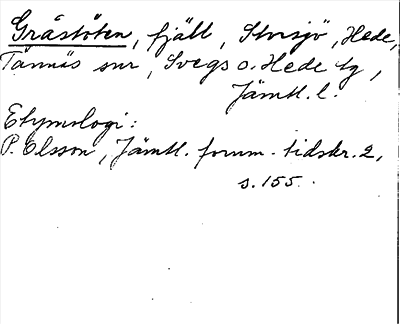 Gråstöten, fjäll, Storsjö, Hede,
Tännäs snr, Svegs o. Hede tg,
Jämtl. l.
Etymologi:
P. Olsson, Jämtl. fornm. tidskr. 2,
s. 155.